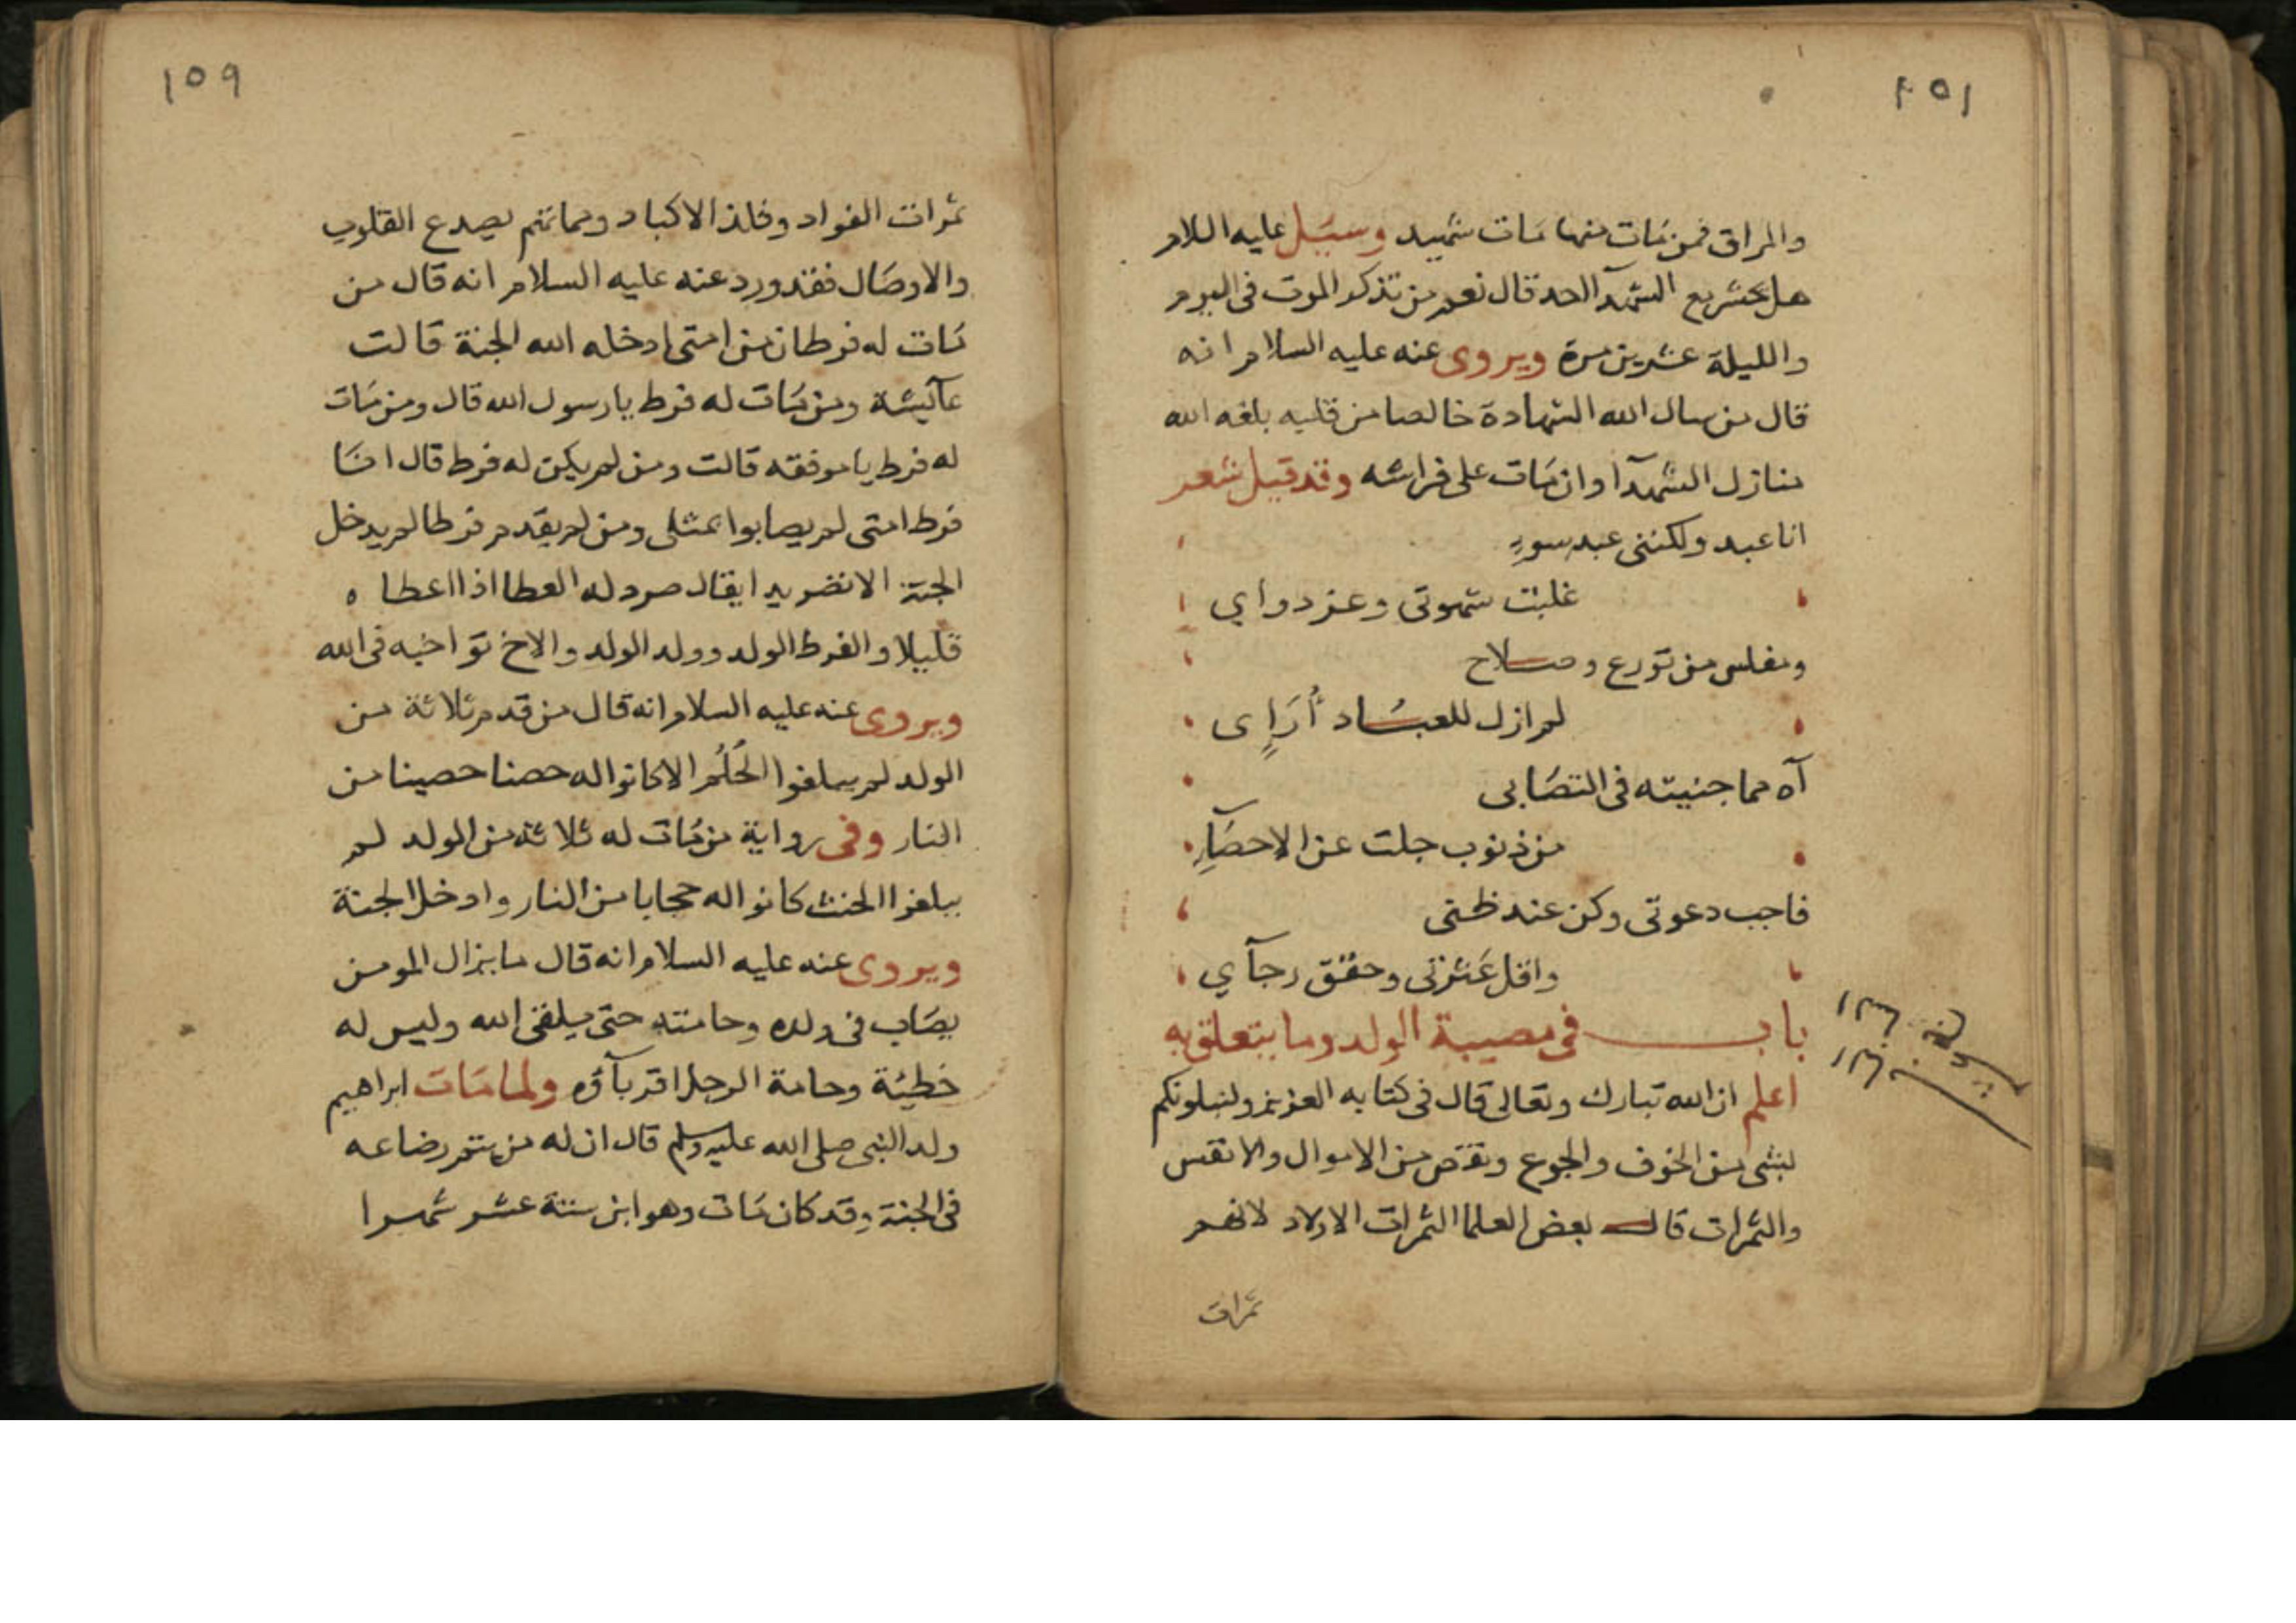 والمراق فمن مات منها مات شهيد وسيل عليه السلام
هل يحشر مع الشهدآ احد قال نعم من تذكر الموت في اليوم
والليلة عشرين مرة ويروى عنه عليه السلام انه
قال من سال الله الشهادة خالصا من قلبه بلغه الله
منازل الشهدآ وان مات على فراشه وقد قيل شعر
انا عبد ولكننى عبد سوء
غلبت شهوتى وعز دواي
ومفلس من تورع وصلاح
لم ازل للعباد أرَاءِى
آه مما جنيته فى التصابى
من ذنوب جلت عن الاحصآءِ
فاجب دعوتى وكن عند ظنى
واقل عَثرتى وحقق رجآي
باب فى مصيبة الولد وما يتعلق به
اعلم ان الله تبارك وتعالى قال فى كتابه العزيز ولنبلونكم
بشى من الخوف والجوع ونقص من الاموال والانفس
والثمرات قال بعض العلما الثمرات الاولاد لانهم
ثمرات
١٥٩
ثمرات الفواد وفلذ الاكباد ومماتهم يصدع القلوب
والاوصال فقد ورد عنه عليه السلام انه قال من
مات له فرطان من امتى ادخله الله الجنة قالت
عآئيشة ومن مات له فرط يا رسول الله قال ومن مات
له فرط يا موفقه قالت ومن لم يكن له فرط قال انا
فرط امتى لم يصابوا بمثلى ومن لم يقدم فرطا لم يدخل
الجنة الا تضريدا يقال صرد له العطا اذا اعطاه
قليلا والفرط الولد وولد الولد والاخ تواخيه فى الله
ويروى عنه عليه السلام انه قال من قدم ثلاثة من
الولد لم يبلغوا الحُلُم الا كانوا له حصنا حصينا من
النار وفى رواية من مات له ثلاثة من الولد لم
يبلغوا الحنث كانوا له حجابا من النار وادخل الجنة
ويروى عنه عليه السلام انه قال ما يزال المومن
يصاب فى ولده وحامته حتى يلقى الله وليس له
خطيئة وحامة الرجل اقربآؤه ولما مات ابراهيم
ولد النبى صلى الله عليه وسلم قال ان له من يتم رضاعه
فى الجنة وقد كان مات وهو ابن ستة عشر شهرا